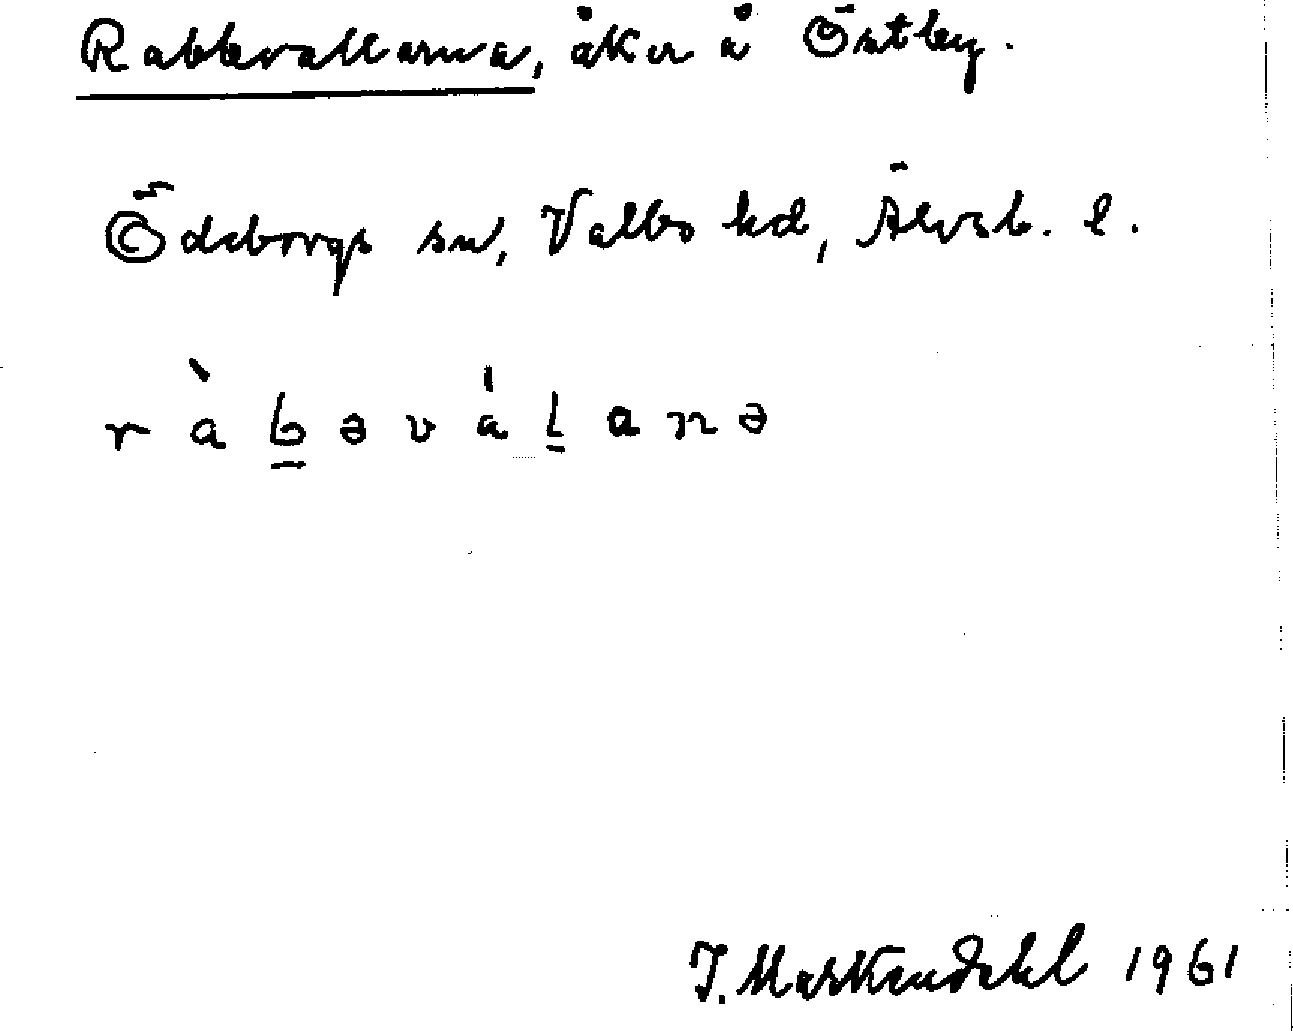 Rabbevallarna, åker å Östby.
Ödeborgs sn, Valbo hd, Älvsb. l.
ràbəváḷanə
1961